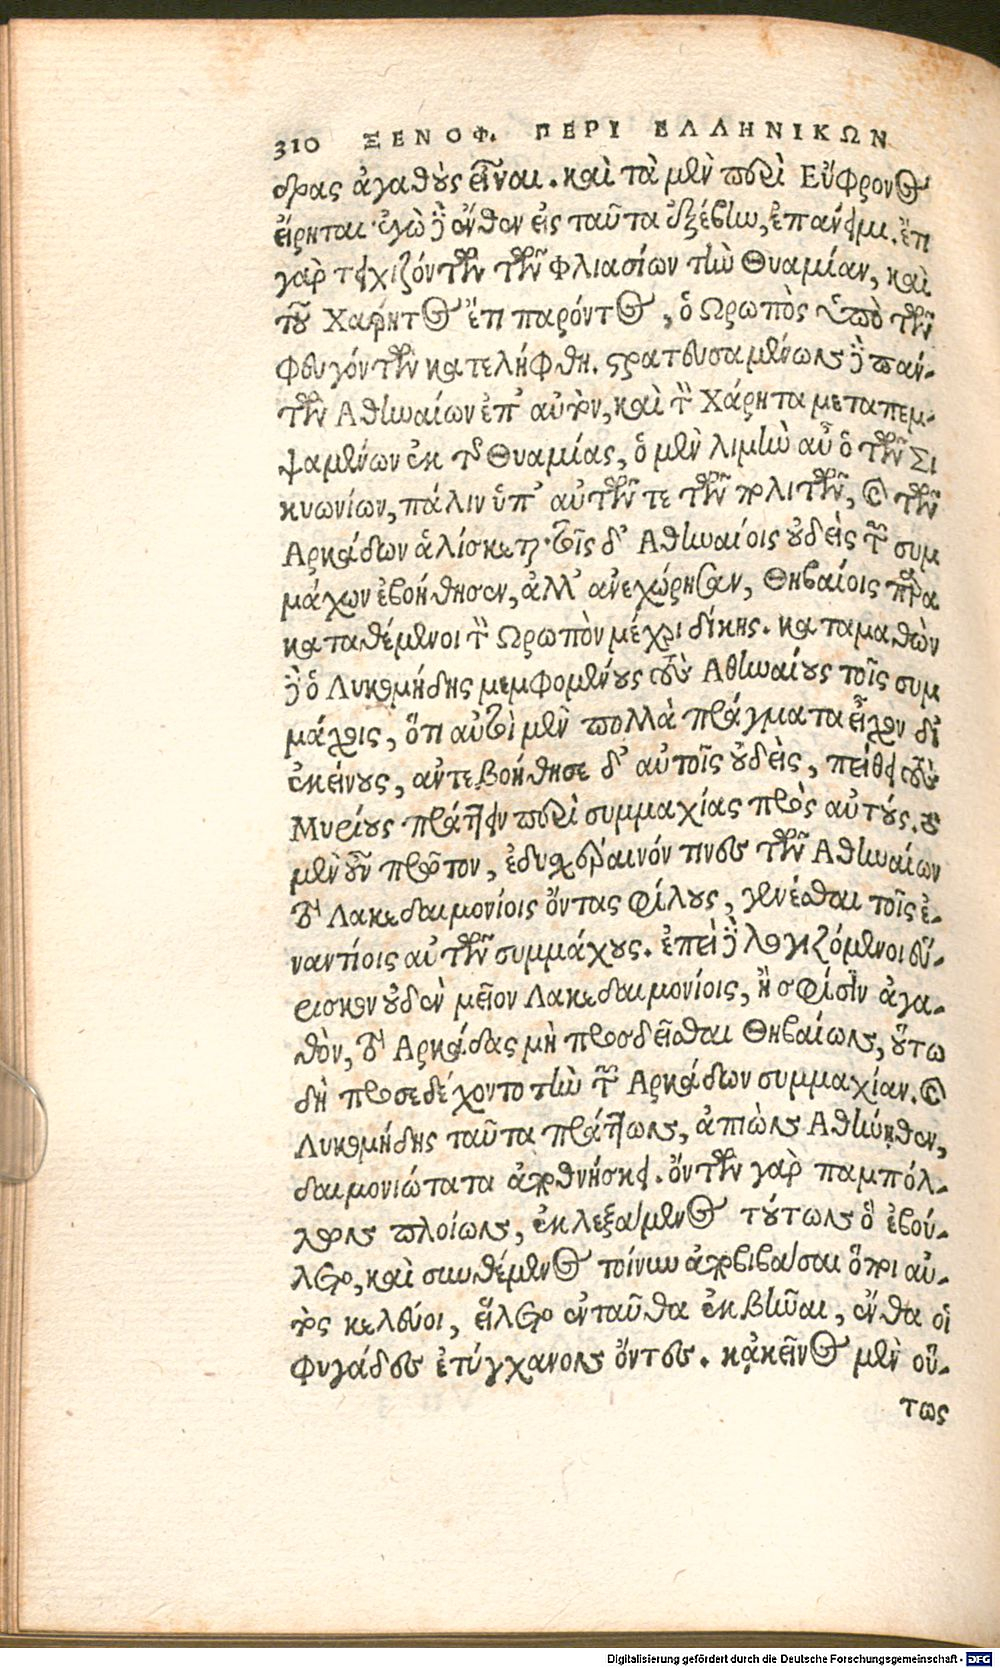 310 ΞΕΝΟΦ. ΠΕΡΙ ΕΛΛΗΝΙΚΩΝ
δρας ἀγαθοὺς εἶναι. καὶ τὰ μὲν περὶ Εὔφρονος
εἴρηται· ἐγὼ δὲ ἔνθεν εἰς ταῦτα ἐξέβην, ἐπάνειμι. ἔτι
γὰρ τειχιζόντων τῶν Φλιασίων τὴν Θυαμίαν, καὶ
τοῦ Χάρητος ἔτι παρόντος, ὁ Ωρωπὸς ὑπὸ τῶν
φευγόντων κατελήφθη. στρατευσαμένων δὲ πάν-
των Αθηναίων ἐπ' αὐτὸν, καὶ τὸν Χάρητα μεταπεμ-
ψαμένων ἐκ τῆς Θυαμίας, ὁ μὲν λιμὴν αὖ ὁ τῶν Σι
κυωνίων, πάλιν ὑπ' αὐτῶν τε τῶν πολιτῶν, καὶ τῶν
Αρκάδων ἁλίσκεται· τοῖς δ' Αθηναίοις οὐδεὶς τῶν συμ
μάχων ἐβοήθησεν, ἀλλ' ἀνεχώρησαν, Θηβαίοις παρα
καταθέμενοι τὸν Ωρωπὸν μέχρι δίκης. καταμαθὼν
δὲ ὁ Λυκομήδης μεμφομένους τοὺς Αθηναίους τοῖς συμ
μάχοις, ὅτι αὐτοὶ μὲν πολλὰ πράγματα εἶχον δι'
ἐκείνους, ἀντεβοήθησε δ' αὐτοῖς οὐδεὶς, πείθει τοὺς
Μυρίους πράττειν περὶ συμμαχίας πρὸς αὐτούς. τὸ
μὲν οὖν πρῶτον, ἐδυσχέραινόν τινες τῶν Αθηναίων
τὸ Λακεδαιμονίοις ὄντας φίλους, γενέσθαι τοῖς ἐ-
ναντίοις αὐτῶν συμμάχους. ἐπεὶ δὲ λογιζόμενοι εὕ-
ρισκον οὐδὲν μεῖον Λακεδαιμονίοις, ἢ σφίσιν ἀγα-
θὸν, τὸ Αρκάδας μὴ προσδεῖσθαι Θηβαίων, οὕτω
δὴ προσεδέχοντο τὴν τῶν Αρκάδων συμμαχίαν. καὶ
Λυκομήδης ταῦτα πράττων, ἀπιὼν Αθήνηθεν,
δαιμονιώτατα ἀποθνήσκει. ὄντων γὰρ παμπόλ-
λων πλοίων, ἐκλεξάμενος τούτων ὃ ἐβού-
λετο, καὶ συνθέμενος τοίνυν ἀποβιβάσαι ὅποι αὐ-
τὸς κελεύοι, εἵλετο ἐνταῦθα ἐκβῆναι, ἔνθα οἱ
φυγάδες ἐτύγχανον ὄντες. κἀκεῖνος μὲν οὕ-
τως
Digitalisierung gefördert durch die Deutsche Forschungsgemeinschaft - DFG